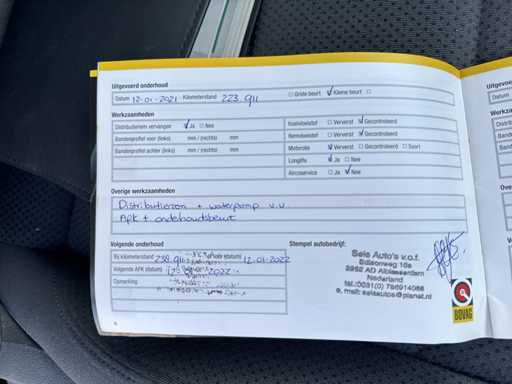 Uitgevoerd onderhoud
Datum 12-01-2021 Kilometerstand 223.911 Grote beurt Kleine beurt
Werkzaamheden
Distributieriem vervangen Ja Nee
Bandenprofiel voor (links) mm / (rechts) mm
Bandenprofiel achter (links) mm / (rechts) mm
Koelvloeistof Ververst Gecontroleerd
Remvloeistof Ververst Gecontroleerd
Motorolie Ververst Gecontroleerd Soort
Longlife Ja Nee
Aircoservice Ja Nee
Overige werkzaamheden
Distributieriem + waterpomp v.v.
Apk + onderhoudsbeurt
Volgende onderhoud
Bij kilometerstand 238.911 of vóór datum 12-01-2022
Volgende APK datum 2022
Opmerking
Stempel autobedrijf:
Sels Auto's v.o.f.
Edisonweg 16a
2952 AD Alblasserdam
Nederland
BOVAG
Uitgevoerd
Datum
Werkzaam
Distributi
Bandenp
Bandenp
Overige
Volgend
Bij kilo
Volgen
Opme